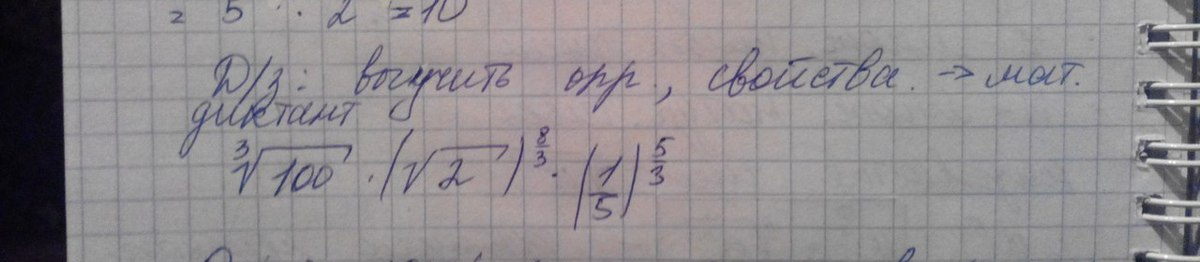 = 5 · 2 = 10
Д/з: выучить опр., свойства. → мат.
диктант
∛100 · (√2)^(8/3) · (1/5)^(5/3)